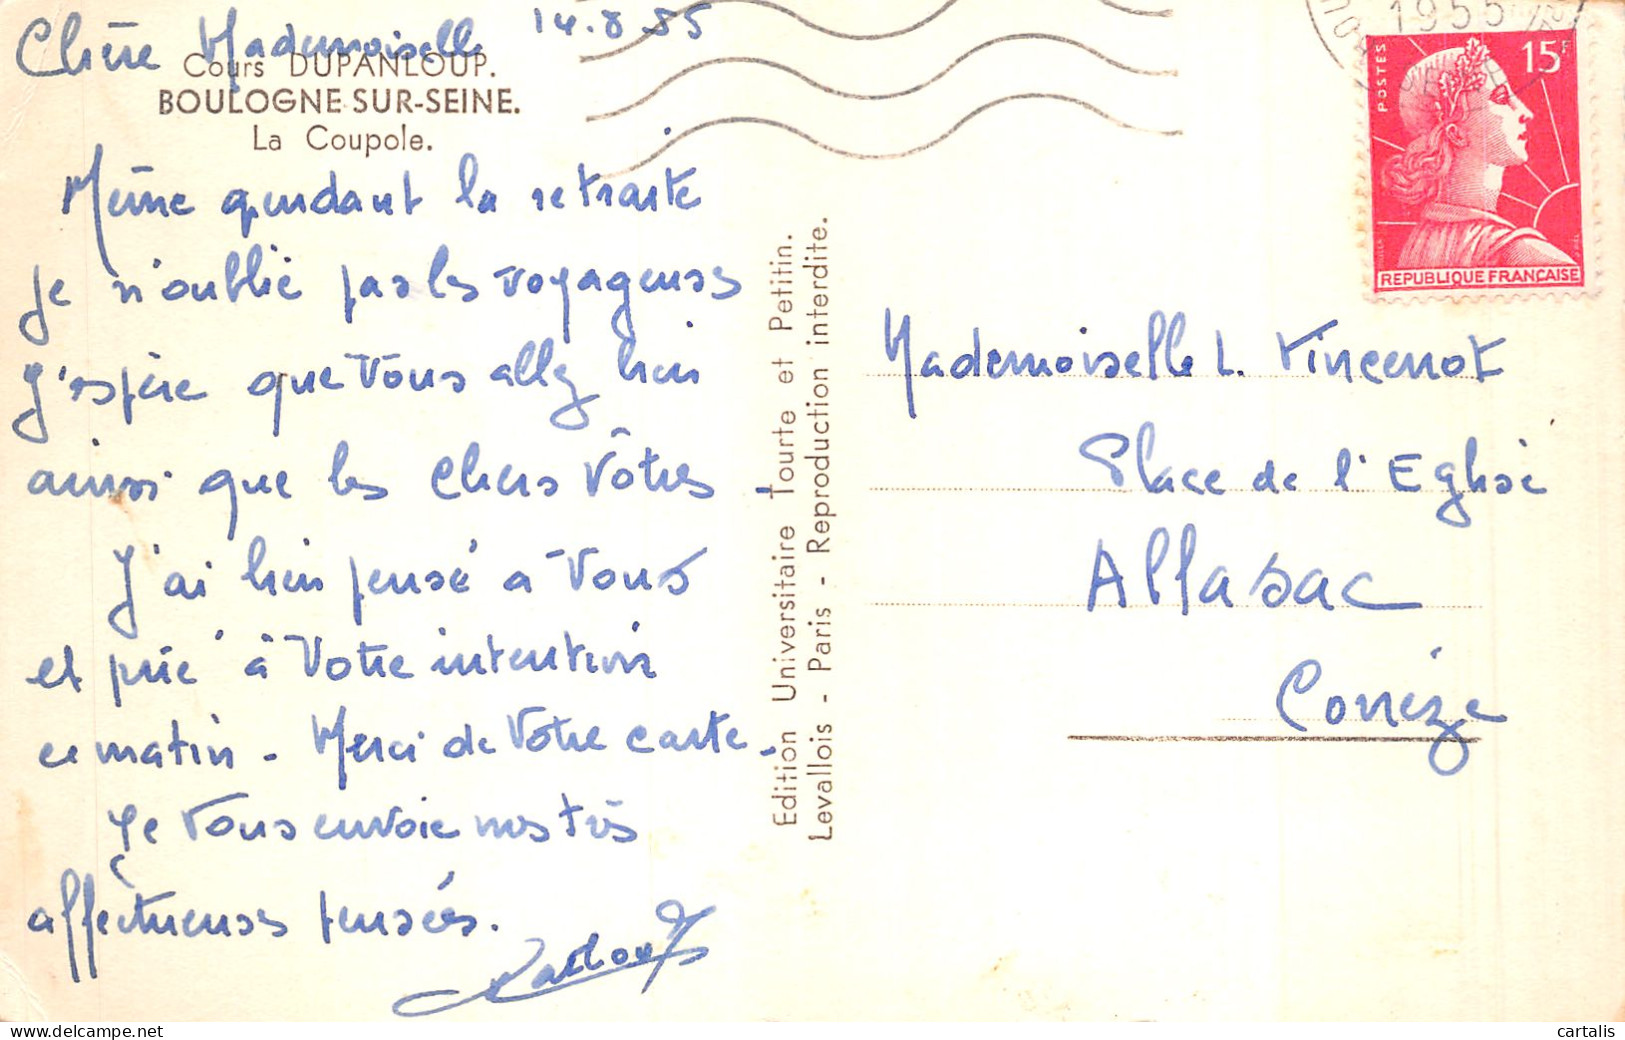 Chère Mademoiselle 14.8.55
Cours DUPANLOUP.
BOULOGNE SUR-SEINE.
La Coupole.
Même pendant la retraite
je n'oublie pas les voyageuses
J'espère que vous allez bien
ainsi que les chers vôtres
J'ai bien pensé à vous
et prié à votre intention
ce matin - Merci de votre carte.
Je vous envoie mes très
affectueuses pensées.
Edition Universitaire Tourte et Petitin.
Levallois - Paris - Reproduction interdite.
1955
POSTES
15F
REPUBLIQUE FRANÇAISE
Mademoiselle L. Vincenot
Place de l'Eglise
Allasac
Corrèze
cartalis